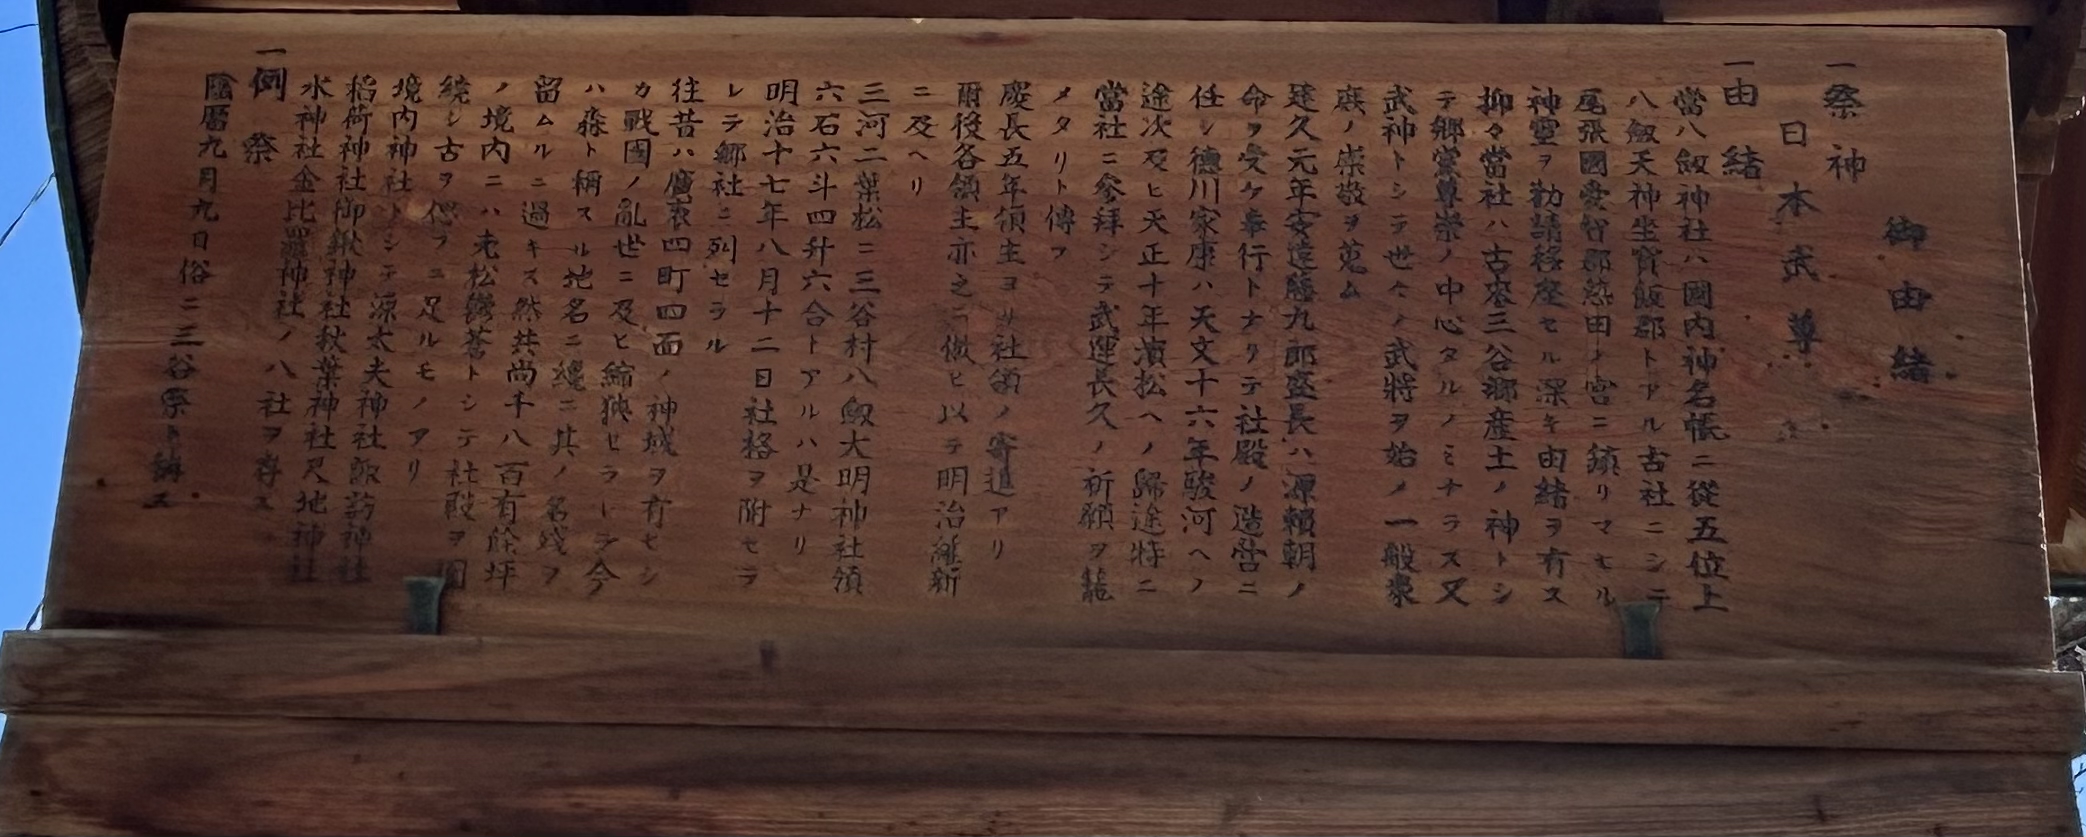 御由緒
一祭神
日本武尊
一由緒
當八劔神社ハ國内神名帳ニ從五位上
八劔天神坐寳飯郡トアル古社ニシテ
尾張國愛智郡熱田ノ宮ニ鎮リマセル
神靈ヲ勸請移座セル深キ由緒ヲ有ス
抑々當社ハ古来三谷郷産土ノ神トシ
テ郷黨尊崇ノ中心タルノミナラス又
武神トシテ世々ノ武將ヲ始メ一般衆
庶ノ崇敬ヲ蒐ム
建久元年安達藤九郎盛長ハ源頼朝ノ
命ヲ受ケ奉行トナリテ社殿ノ造営ニ
任シ德川家康ハ天文十六年駿河ヘノ
途次及ヒ天正十年濱松ヘノ歸途特ニ
當社ニ参拜シテ武運長久ノ祈願ヲ籠
メタリト傳フ
慶長五年領主ヨリ社領ノ寄進アリ
爾後各領主亦之ニ倣ヒ以テ明治維新
ニ及ヘリ
三河二葉松ニ三谷村八劔大明神社領
六石六斗四升六合トアルハ是ナリ
明治十七年八月十二日社格ヲ附セラ
レラ郷社ニ列セラル
往昔ハ廣袤四町四面ノ神域ヲ有セシ
カ戰國ノ亂世ニ及ヒ縮狹セラレラ今
ハ森ト稱スル地名ニ纔ニ其ノ名残ヲ
留ムルニ過キス然共尚千八百有餘坪
ノ境内ニハ老松鬱蒼トシテ社殿ヲ圍
繞シ古ヲ偲フニ足ルモノアリ
境内神社トシテ源太夫神社諏訪神社
稻荷神社御鍬神社秋葉神社尺地神社
水神社金比羅神社ノ八社ヲ存ス
一例祭
陰暦九月九日俗ニ三谷祭ト稱ス